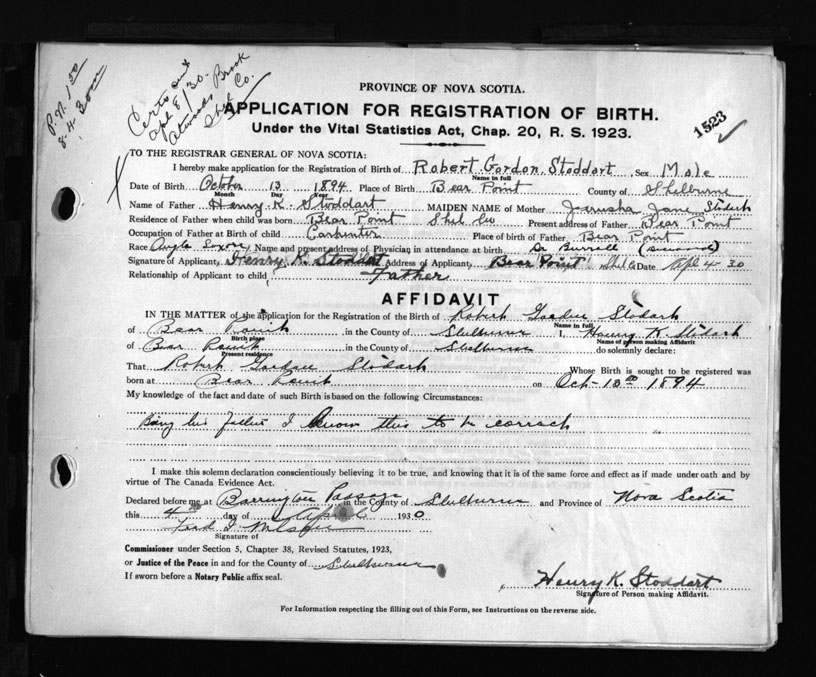 P.N. 1.50
Certs sent
Apl 8/30.
Atwoods Brook
Shel. Co.
PROVINCE OF NOVA SCOTIA.
APPLICATION FOR REGISTRATION OF BIRTH.
Under the Vital Statistics Act, Chap. 20, R. S. 1923.
1523
TO THE REGISTRAR GENERAL OF NOVA SCOTIA:
I hereby make application for the Registration of Birth of Robert Gordon Stoddart, Sex Male
Name in full
Date of Birth October 13 1894 Place of Birth Bear Point County of Shelburne
Month Day Year
Name of Father Henry K. Stoddart MAIDEN NAME of Mother Jerusha Jane Stodart
Residence of Father when child was born Bear Point Shel Co Present address of Father Bear Point
Occupation of Father at Birth of Child Carpinter Place of birth of Father Bear Point
Race Anglo Saxon Name and present address of Physician in attendance at birth Dr Burrell
Signature of Applicant, Henry K. Stoddart Address of Applicant, Bear Point Shel Co Date Apl 4-30
Relationship of Applicant to child, Father
AFFIDAVIT
IN THE MATTER of the application for the Registration of the Birth of Robert Gordon Stodart
Name in full
of Bear Point in the County of Shelburne I, Henry K. Stodart
Birth place Name of person making Affidavit
of Bear Point in the County of Shelburne do solemnly declare:
Present residence
That Robert Gordon Stodart Whose Birth is sought to be registered was
born at Bear Point on Oct- 13th 1894
My knowledge of the fact and date of such Birth is based on the following Circumstances:
Being his father I know this to be correct
I make this solemn declaration conscientiously believing it to be true, and knowing that it is of the same force and effect as if made under oath and by
virtue of The Canada Evidence Act.
Declared before me at Barrington Passage in the County of Shelburne and Province of Nova Scotia
this 4th day of April 1930
Signature of
Commissioner under Section 5, Chapter 38, Revised Statutes, 1923,
or Justice of the Peace in and for the County of Shelburne
If sworn before a Notary Public affix seal.
Henry K. Stoddart
Signature of Person making Affidavit.
For Information respecting the filling out of this Form, see Instructions on the reverse side.